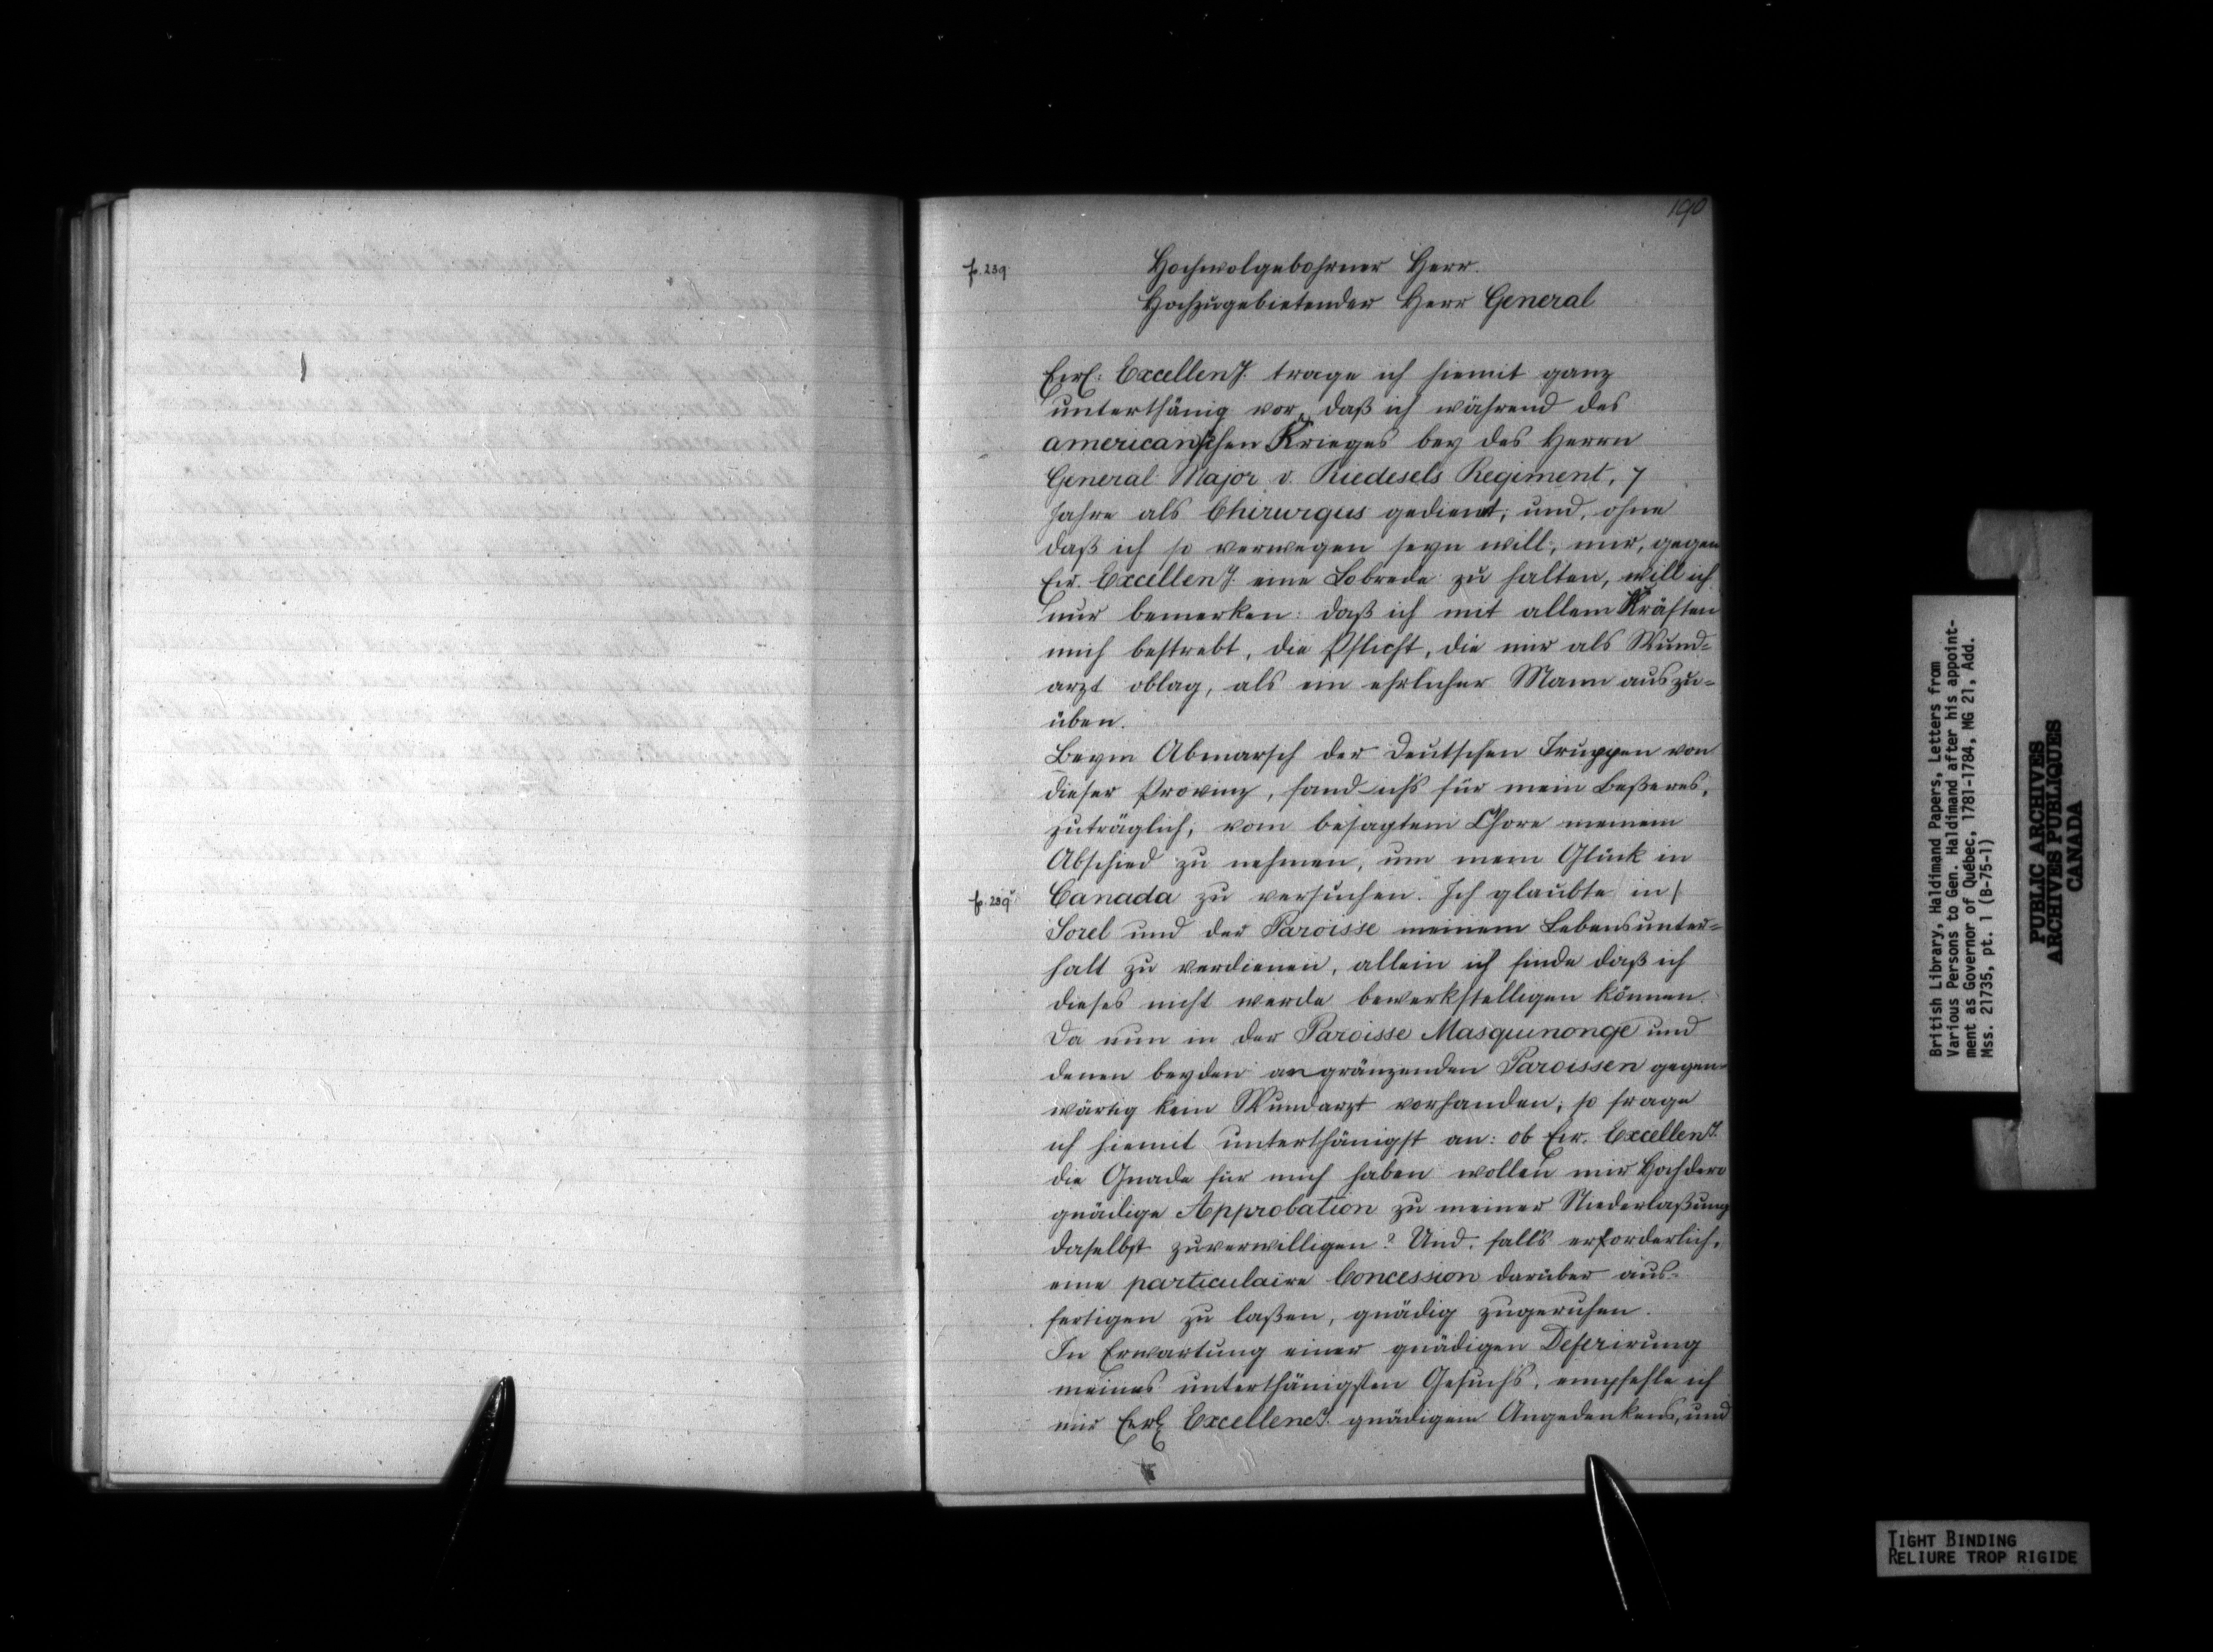 190
f. 239
Hochwolgebohrner Herr.
Hochzugebietender Herr General
Ewl: Excellenz. trage ich hiemit ganz
unterthänig vor, daß ich während des
americanischen Krieges bey des Herrn
General Major v Riedesels Regiment, 7
Jahre als Chirurgus gedient, und, ohne
daß ich so verwegen seyn will, mir, gegen
Ew. Excellenz. eine Lobrede zu halten, will ich
nur bemerken: daß ich mit allem Kräften
mich bestrebt, die Pflicht, die mir als Wund=
arzt oblag, als ein ehrlicher Mann auszu=
üben.
Beym Abmarsch der deutschen Truppen von
dieser Provinz, fand ichs für mein Beßeres,
zuträglich, vom besagtem Chore meinem
Abschied zu nehmen, um mein Glück in
f. 239v
Canada zu versuchen. Ich glaubte in /
Sorel und der Paroisse meinem Lebensunter=
halt zu verdienen, allein ich finde daß ich
dieses nicht werde bewerkstelligen können.
Da nun in der Paroisse Masquinonge und
denen beyden angränzenden Paroissen gegen=
wärtig kein Wundarzt vorhanden; so frage
ich hiemit unterthänigst an: ob Ew. Excellenz.
die Gnade für mich haben wollen mir Hochdero
gnädige Approbation zu meiner Niederlaßung
daselbst zuverwilligen? Und, falls erforderlich,
eine particulaire Concession darüber aus=
fertigen zu laßen, gnädig zugeruhen.
In Erwartung einer gnädigen Deferirung
meines unterthänigsten Gesuchs, empfehle ich
mir Ewl Excellenz. gnädigem Angedenkens, und
British Library, Haldimand Papers, Letters from
Various Persons to Gen. Haldimand after his appoint-
ment as Governor of Québec, 1781-1784, MG 21, Add.
Mss. 21735, pt. 1 (B-75-1)
PUBLIC ARCHIVES
ARCHIVES PUBLIQUES
CANADA
TIGHT BINDING
RELIURE TROP RIGIDE